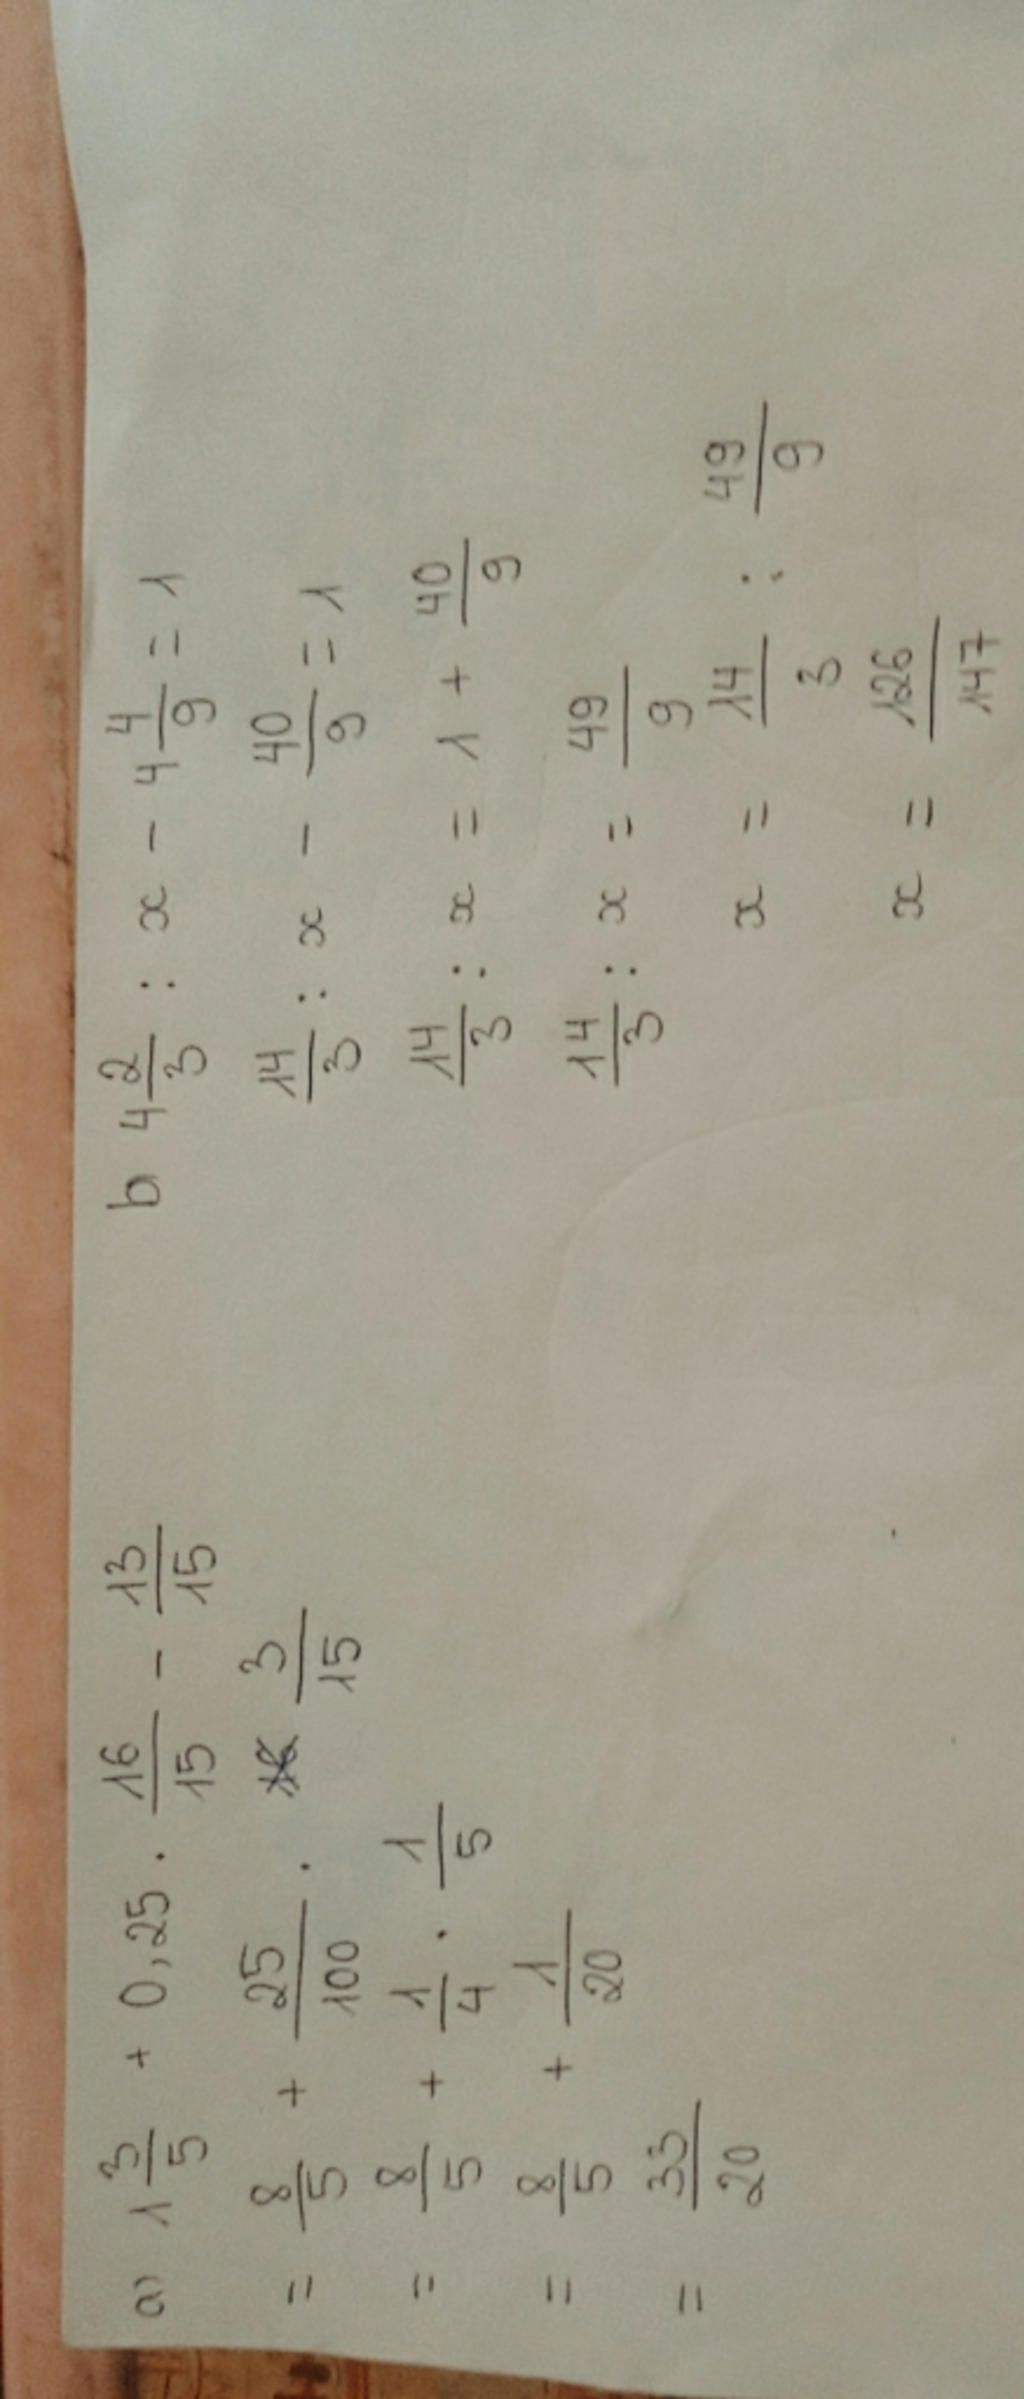 a) 1 3/5 + 0,25 . 16/15 - 13/15
= 8/5 + 25/100 . 3/15
= 8/5 + 1/4 . 1/5
= 8/5 + 1/20
= 33/20
b 4 2/3 : x - 4 4/9 = 1
14/3 : x - 40/9 = 1
14/3 : x = 1 + 40/9
14/3 : x = 49/9
x = 14/3 : 49/9
x = 126/147